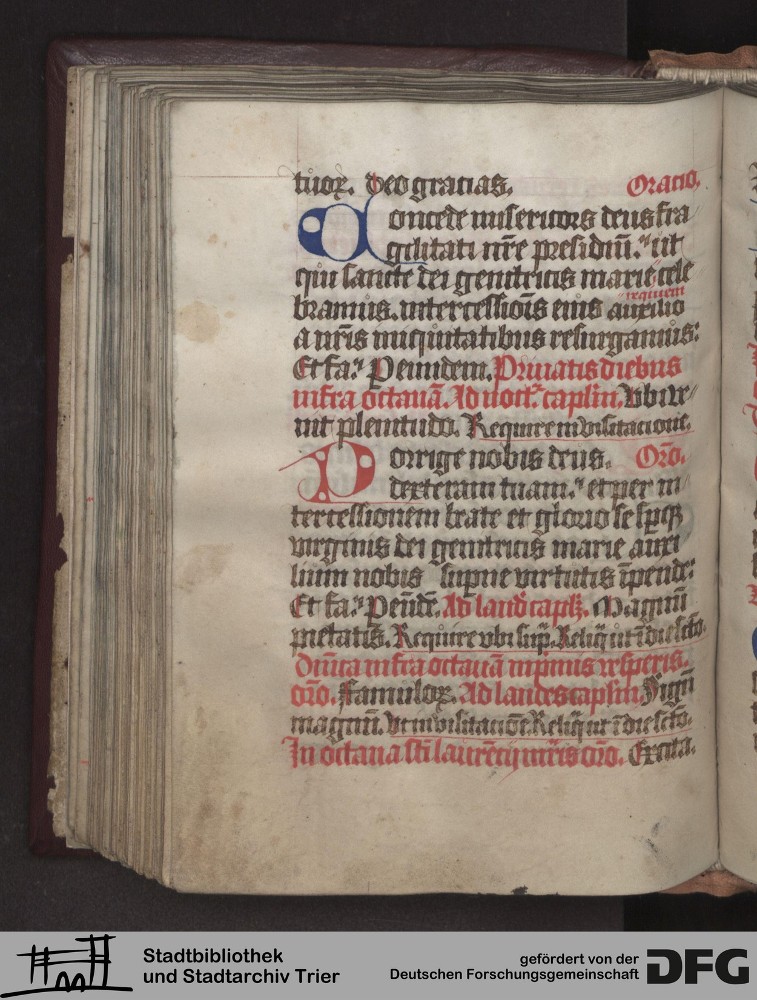 tuoꝝ. deo gracias. Oracio.
Concede misericors deus fra
gilitati nr̄e presidiū. ut
qui sancte dei genitricis marie cele
requiem
bramus. intercessiōis eius auxilio
a nr̄is iniquitatibus resurgamus.
Et fa. P eundem. Priuatis diebus
infra octauā. Ad noct. caplm̄. Vbi ve
nit plenitudo. Require in visitacione.
Porrige nobis deus. Orō.
dexteram tuam. et per in
tercessionem beate et gloriose semp̄qꝫ
virginis dei genitricis marie auxi
lium nobis supne virtutis īpende.
Et fa. P eūdē. Ad laud̄ caplꝫ. Magnū
pietatis. Require vbi sup̄. Reliq̄ ut ī die sc̄to.
Dn̄ica infra octauā in pimis vesperis.
orō. Famuloꝝ. Ad laudes caplm̄. Signū
magnū. Vt in visitaciōe. Reliq̄ ut ī die sc̄to.
In octaua sc̄ti laurēcij mr̄is orō. Excita.
Stadtbibliothek
und Stadtarchiv Trier
gefördert von der
Deutschen Forschungsgemeinschaft
DFG